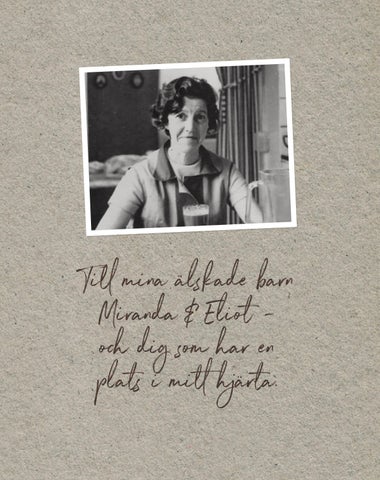 Till mina älskade barn
Miranda & Eliot -
och dig som har en
plats i mitt hjärta.